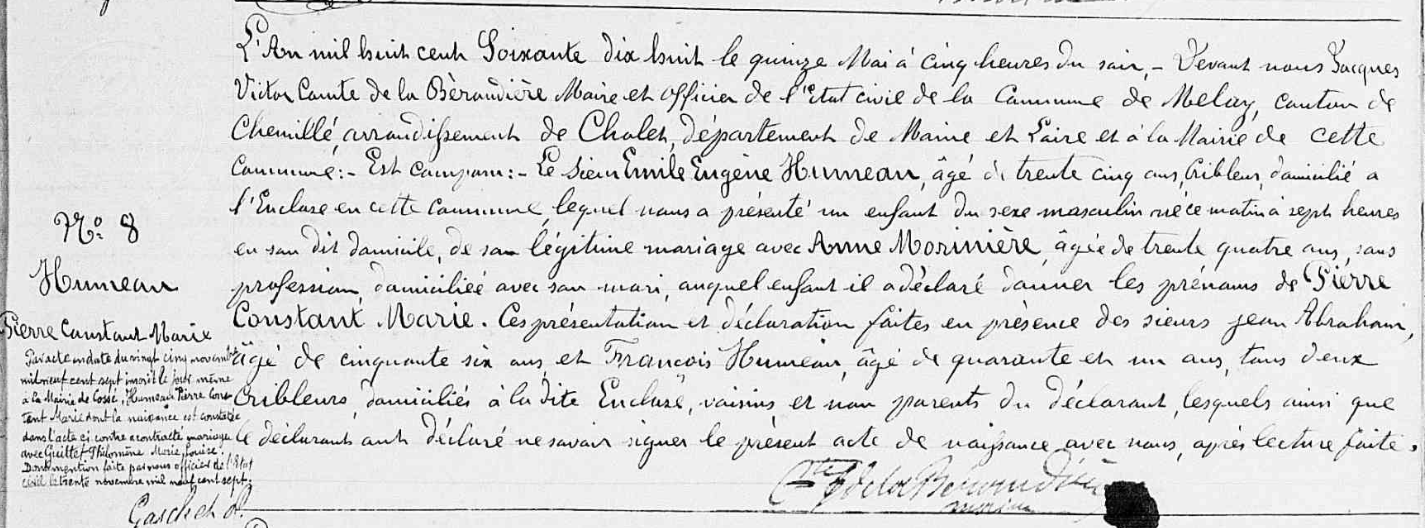 L'An mil huit cent Soixante dix huit le quinze Mai à cinq heures du soir, - Devant nous Jacques
Victor Comte de la Béraudière Maire et officier de l'Etat civil de la Commune de Melay, canton de
Chemillé, arrondissement de Cholet, département de Maine et Loire et à la Mairie de cette
Commune:- Est comparu:- Le sieur Emile Eugène Humeau, âgé de trente cinq ans, Cribleur, domicilié à
l'Encluse en cette commune, lequel nous a présenté un enfant du sexe masculin né ce matin à sept heures
en son dit domicile, de son légitime mariage avec Anne Morinière, âgée de trente quatre ans, sans
profession, domiciliée avec son mari, auquel enfant il a déclaré donner les prénoms de Pierre
Constant Marie. Ces présentation et déclaration faites en présence des sieurs Jean Abraham,
âgé de cinquante six ans et François Humeau, âgé de quarante et un ans, tous deux
Cribleurs, domiciliés à la dite Encluse, voisins et non parents du déclarant, lesquels ainsi que
le déclarant ont déclaré ne savoir signer le présent acte de naissance avec nous, après lecture faite.
Cte de la Béraudière
N°: 8
Humeau
Pierre Constant Marie
Par acte en date du vingt cinq novembre
mil neuf cent sept inscrit le jour même
à la Mairie de Cossé, Humeau Pierre Cons-
tant Marie dont la naissance est constatée
dans l'acte ci contre a contracté mariage
avec Philomène Marie Louise.
Dont mention faite par nous officier de l'Etat
civil le trente novembre mil neuf cent sept.